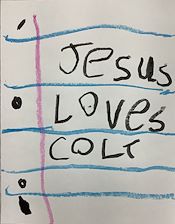 Jesus
Loves
COLT